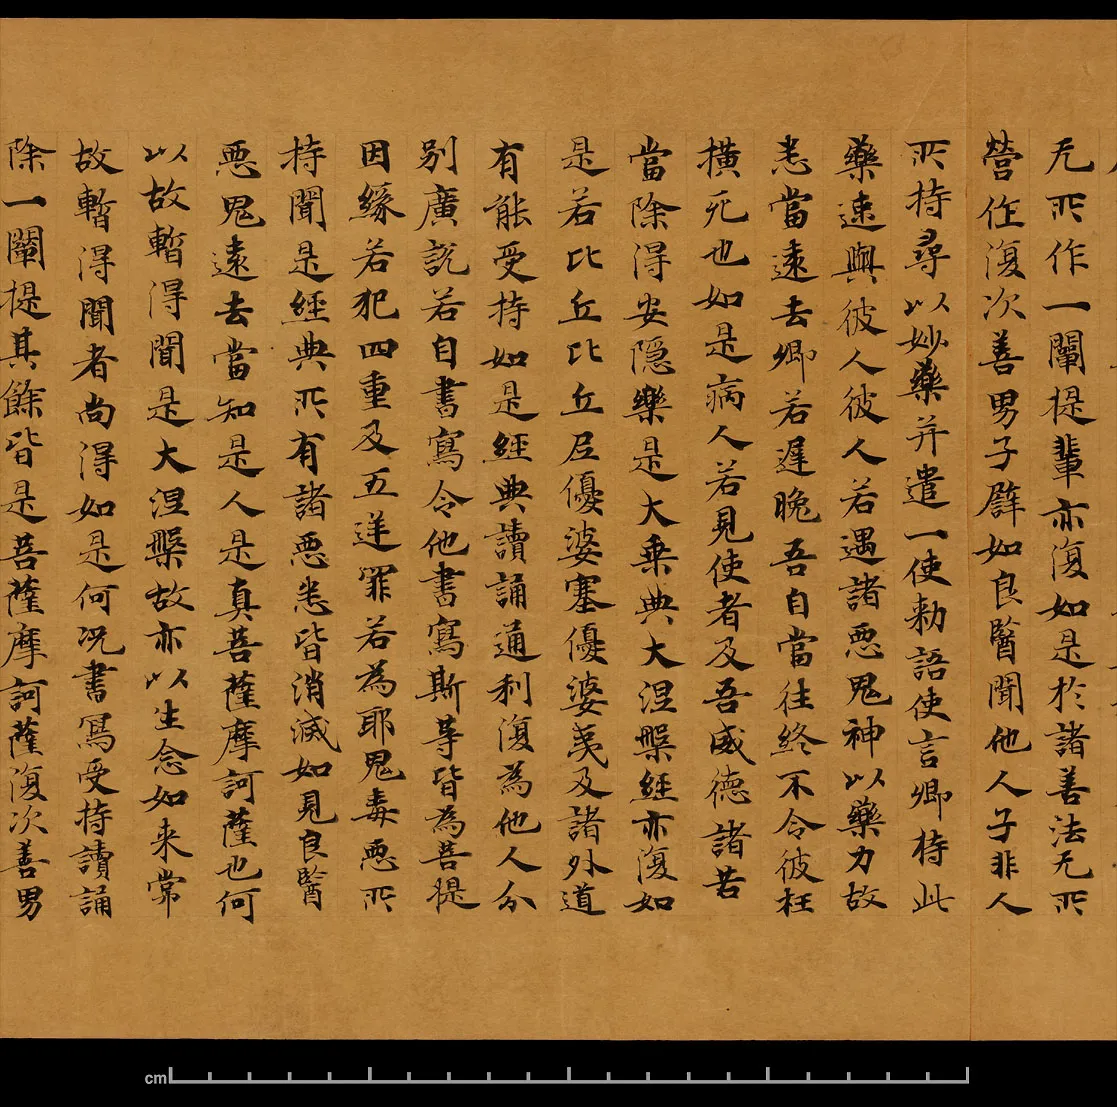 无所作一闡提輩亦復如是於諸善法无所
營作復次善男子譬如良醫聞他人子非人
所持尋以妙藥并遣一使勑語使言卿持此
藥速與彼人彼人若遇諸惡鬼神以藥力故
悉當遠去卿若遲晚吾自當往終不令彼枉
橫死也如是病人若見使者及吾威德諸苦
當除得安隱樂是大乘典大涅槃經亦復如
是若比丘比丘尼優婆塞優婆夷及諸外道
有能受持如是經典讀誦通利復為他人分
別廣說若自書寫令他書寫斯等皆為菩提
因緣若犯四重及五逆罪若為耶鬼毒惡所
持聞是經典所有諸惡悉皆消滅如見良醫
惡鬼遠去當知是人是真菩薩摩訶薩也何
以故暫得聞是大涅槃故亦以生念如来常
故暫得聞者尚得如是何況書寫受持讀誦
除一闡提其餘皆是菩薩摩訶薩復次善男